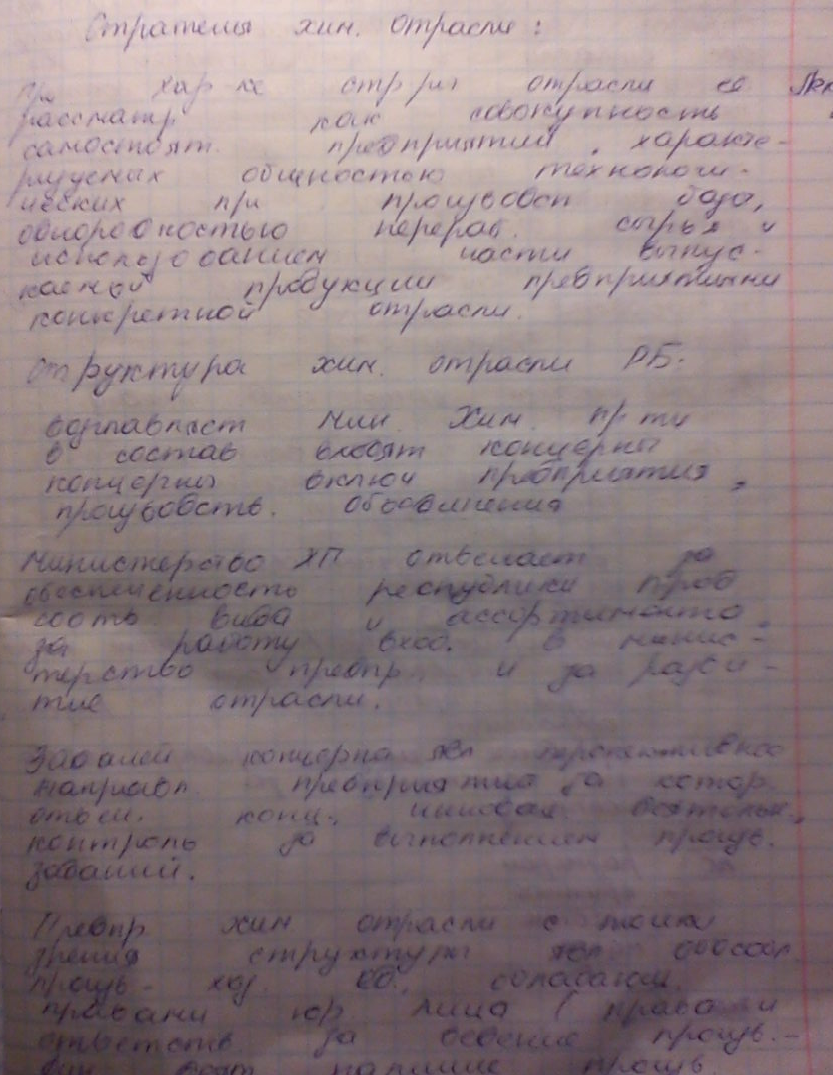 Стратегия хим. отрасли:
При хар-ке стр-ры отрасли ее
рассматр как совокупность
самостоят. предприятий, характе-
ризуемых общностью технологи-
ческих при производст база,
однородностью перераб. сырья и
использованием части выпус-
каемой продукции предприятиями
конкретной отрасли.
Структура хим. отрасли РБ.
возглавляет Мин. Хим. пр-ти
в состав входят концерны
концерны включ предприятия,
производств. объединения
Министерство ХП отвечает за
обеспеченность республики прод
соотв вида и ассортимента,
за работу вход. в минис-
терство предпр и за разви-
тие отрасли.
Задачей концерна явл перспективное
направл. предприятия за котор
отвеч. конц., деятельн.,
контроль за выполнением произв.
заданий.
Предпр хим отрасли с точки
зрения структуры явл обособл.
произв- хоз. ед., обладающ.
правами юр лица (права и
ответств. за ведение произв.-
наличие произв.